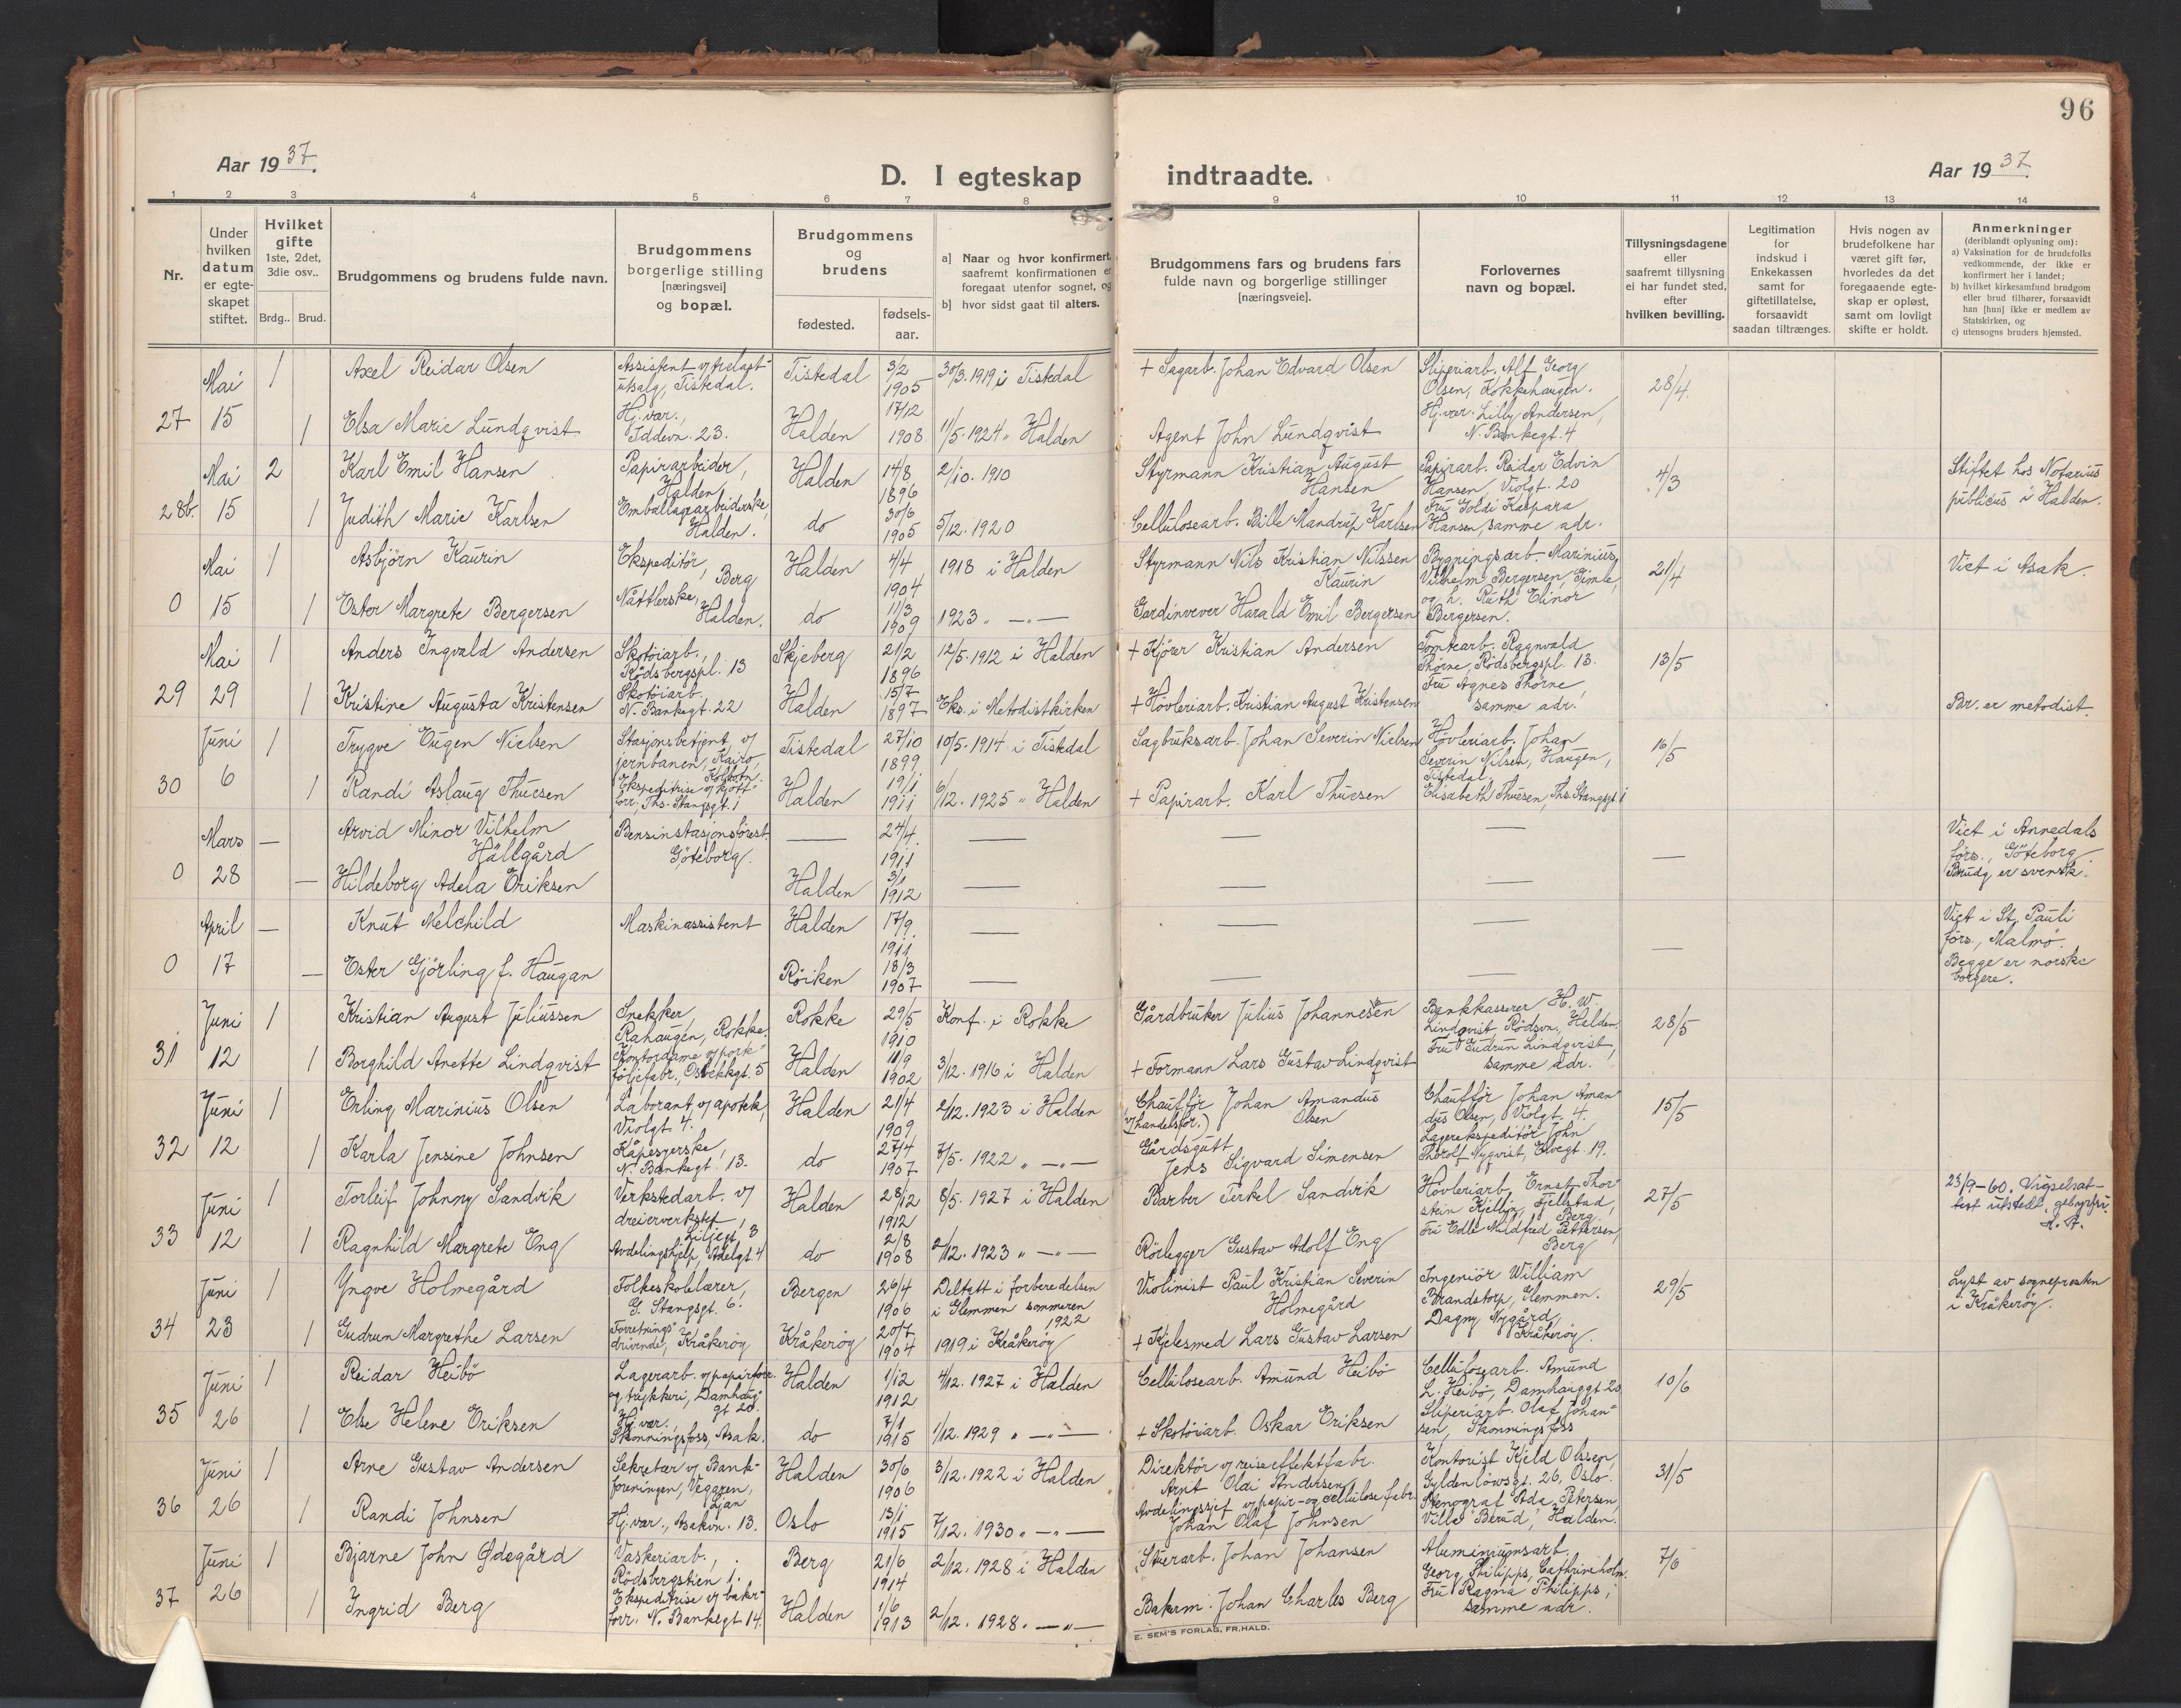 96
Aar 19 37.
D. I egteskap indtraadte.
Aar 19 37.
1 2 3 4 5 6 7 8 9 10 11 12 13 14
Nr.
Under hvilken datum er egteskapet stiftet.
Hvilket gifte 1ste, 2det, 3die osv..
Brdg.. Brud.
Brudgommens og brudens fulde navn.
Brudgommens borgerlige stilling [næringsvei] og bopæl.
Brudgommens og brudens
fødested.
fødsels-aar.
a] Naar og hvor konfirmert, saafremt konfirmationen er foregaat utenfor sognet, og
b] hvor sidst gaat til alters.
Brudgommens fars og brudens fars fulde navn og borgerlige stillinger [næringsveie].
Forlovernes navn og bopæl.
Tillysningsdagene eller saafremt tillysning ei har fundet sted, efter hvilken bevilling.
Legitimation for indskud i Enkekassen samt for giftetillatelse, forsaavidt saadan tiltrænges.
Hvis nogen av brudefolkene har været gift før, hvorledes da det foregaaende egteskap er opløst, samt om lovligt skifte er holdt.
Anmerkninger (deriblandt oplysning om):
a) Vaksination for de brudefolks vedkommende, der ikke er konfirmert her i landet;
b) hvilket kirkesamfund brudgom eller brud tilhører, forsaavidt han [hun] ikke er medlem av Statskirken, og
c) utensogns bruders hjemsted.
27 Mai 15
1 Axel Reidar Olsen Assistent v/trelast-utsalg, Tistedal. Tistedal 3/2 1905 30/3. 1919 i Tistedal + Sagarb. Johan Edvard Olsen Sliperiarb. Alf Georg Olsen, Kokkehaugen. 28/4.
1 Elsa Marie Lundqvist Hj. vær., Iddevn. 23. Halden 17/12 1908 11/5. 1924 " Halden Agent John Lundqvist Hj. vær. Lilly Andersen, N. Bankegt. 4
28b. Mai 15
2 Karl Emil Hansen Papirarbeider, Halden Halden 14/8 1896 2/10. 1910 Styrmann Kristian August Hansen Papirarb. Reidar Edvin Hansen, Violgt. 20 4/3 Stiftet hos Notarius publicus i Halden.
1 Judith Marie Karlsen Emballagearbeiderske, Halden. do 30/6 1905 5/12. 1920 Cellulosearb. Bille Mandrup Karlsen Fru Goldi Kaspara Hansen, samme adr.
0 Mai 15
1 Asbjörn Kaurin Ekspeditör, Berg Halden 4/4 1904 1918 i Halden Styrmann Nils Kristian Nilssen Kaurin Bygningsarb. Marinius Vilhelm Bergersen, Gimle, 21/4 Viet i Asak.
1 Ester Margrete Bergersen Nåttlerske, Halden. do 11/3 1909 1923 " —"— Gardinvever Harald Emil Bergersen og h. Ruth Elinor Bergersen.
29 Mai 29
1 Anders Ingvald Andersen Skotöiarb., Rödsbergspl. 13 Skjeberg 21/2 1896 12/5. 1912 i Halden + Kjörer Kristian Andersen Tomtearb. Ragnvald Thorne, Rödsbergspl. 13. 13/5
1 Kristine Augusta Kristensen Skotöiarb. N. Bankegt. 22 Halden 15/7 1897 Eks. i Metodistkirken + Hövleriarb. Kristian August Kristensen Fru Agnes Thorne, samme adr. Br. er metodist.
30 Juni 6
1 Trygve Eugen Nielsen Stasjonsbetjent v/ jernbanen, Kairo, Kolbotn. Tistedal 27/10 1899 10/5. 1914 i Tistedal Sagbruksarb. Johan Severin Nielsen Hövleriarb. Johan Severin Nilsen, Haugen, Tistedal. 16/5
1 Randi Aslaug Thuesen Ekspeditrise v/kjött-forr., Ths. Stangsgt. 1 Halden 19/1 1911 6/12. 1925 " Halden + Papirarb. Karl Thuesen Elisabeth Thuesen, Ths. Stangsgt. 1
0 Mars 28
— Arvid Minor Vilhelm Hällgård Bensinstasjonsforest. Göteborg. — 24/4 1911 — — — — Viet i Annedals förs., Göteborg. Brudg. er svensk.
— Hildeborg Adela Eriksen Halden 3/1 1912 — — —
0 April 17
— Knut Melchild Maskinassistent Halden 17/9 1911 — — — — Viet i St. Pauli förs., Malmö. Begge er norske borgere.
— Ester Gjörling f. Haugan Röiken 18/3 1907 — — —
31 Juni 12
1 Kristian August Juliussen Snekker, Rahaugen, Rokke. Rokke 29/5 1910 Konf. i Rokke Gårdbruker Julius Johannesen Bankkasserer H. W. Lindqvist, Rödsvn., Halden. 28/5
1 Borghild Anette Lindqvist Kontordame v/pork-följefabr., Osbekkgt. 5 Halden 11/9 1902 3/12. 1916 i Halden + Formann Lars Gustav Lindqvist Fru Gudrun Lindqvist, samme adr.
32 Juni 12
1 Erling Marinius Olsen Laborant v/apotek, Violgt. 4. Halden 21/4 1909 2/12. 1923 i Halden Chaufför Johan Amandus Olsen (v/handelsfor.) Chaufför Johan Amandus Olsen, Violgt. 4. 15/5
1 Karla Jensine Johnsen Kåpesyerske, N. Bankegt. 13. do 27/4 1907 7/5. 1922 " —"— Gårdsgutt Jens Sigvard Simensen Lagerekspeditör John Thorolf Nyqvist, Elvegt. 19.
33 Juni 12
1 Torleif Johnny Sandvik Verkstedarb. v/ dreierverksted, Liljegt. 3 Halden 28/12 1912 8/5. 1927 i Halden Barber Terkel Sandvik Hövleriarb. Ernst Thorstein Kjellin, Fjellstad, Berg. 27/5 23/9-60. Vigselsattest utstedt, gebyrfri.
1 Ragnhild Margrete Eng Avdelingshjelp, Adelgt. 4 do 2/8 1908 2/12. 1923 " —"— Rörlegger Gustav Adolf Eng Fru Edle Mildfred Pettersen, Berg
34 Juni 23
1 Yngve Holmegård Folkeskolelærer, G. Stangsgt. 6. Bergen 26/4 1906 Deltatt i forberedelsen i Glemmen sommeren 1922 Violinist Paul Kristian Severin Holmegård Ingeniör William Brandstorp, Glemmen. 29/5 Lyst av sognepresten i Kråkeröy.
1 Gudrun Margrethe Larsen Forretnings-drivende, Kråkeröy Kråkeröy 20/7 1904 1919 i Kråkeröy + Kjelesmed Lars Gustav Larsen Dagny Nygård, Kråkeröy.
35 Juni 26
1 Reidar Heibö Lagerarb. v/papirforr. og trykkeri, Damhaug-gt 20. Halden 1/12 1912 4/12. 1927 i Halden Cellulosearb. Amund Heibö Cellulosearb. Amund L. Heibö, Damhauggt 20 10/6
1 Else Helene Eriksen Hj. vær., Skonningsfoss, Asak. do 7/1 1915 1/12. 1929 " —"— + Skotöiarb. Oskar Eriksen Sliperiarb. Olaf Johansen, Skonningsfoss
36 Juni 26
1 Arne Gustav Andersen Sekretær v/ Bank-foreningen, Vegaren, Ljan Halden 30/6 1906 3/12. 1922 i Halden Direktör v/ reiseeffektfabr. Arnt Oldi Andersen Kontorist Kjeld Olssen, Gyldenlöwsgt. 26, Oslo. 31/5
1 Randi Johnsen Hj. vær., Asakvn. 13. Oslo 13/1 1915 7/12. 1930 " —"— Avdelingssjef v/papir- og cellulosefabr. Johan Olaf Johnsen Stenograf Ada Petersen, Villa "Berud", Halden.
37 Juni 26
1 Bjarne John Ödegård Vaskeriarb., Rödsbergstien 1. Berg 21/6 1914 2/12. 1928 i Halden Stuerarb. Johan Johansen Aluminiumsarb. Georg Philipps, Cathrineholm. 7/6
1 Ingrid Berg Ekspeditrise v/ baker-forr. N. Bankegt. 14. Halden 1/6 1913 2/12. 1928. —"— Bakerm. Johan Charles Berg Fru Ragna Philipps, samme adr.
E. SEM'S FORLAG, FR.HALD.